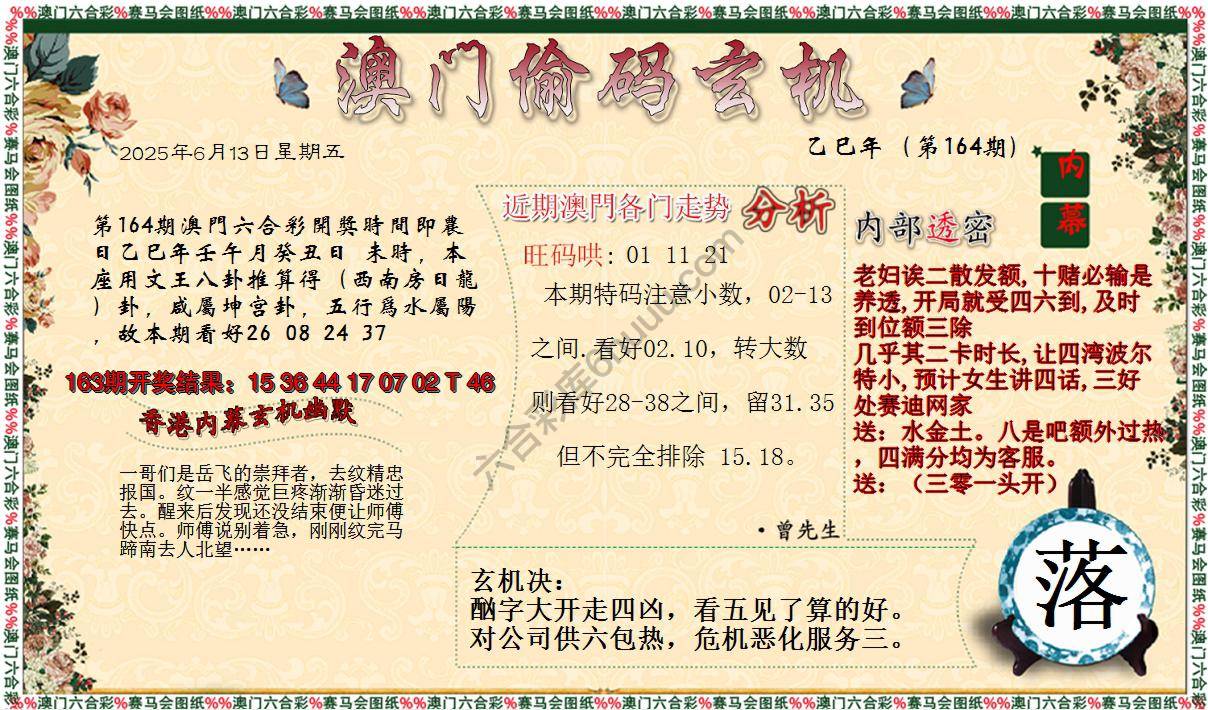 %%澳门六合彩%赛马会图纸%%澳门六合彩%赛马会图纸%%澳门六合彩%赛马会图纸%%澳门六合彩%赛马会图纸%%澳门六合彩%赛马会图纸%%澳门六合彩%赛马会图纸%%
澳门偷码玄机
2025年6月13日星期五
乙巳年（第164期）
第164期澳門六合彩開獎時間即農
日乙巳年壬午月癸丑日 未時，本
座用文王八卦推算得（西南房日龍
）卦，咸屬坤宫卦，五行爲水屬陽
，故本期看好26 08 24 37
163期开奖结果：15 36 44 17 07 02 T 46
香港内幕玄机幽默
一哥们是岳飞的崇拜者，去纹精忠
报国。纹一半感觉巨疼渐渐昏迷过
去。醒来后发现还没结束便让师傅
快点。师傅说别着急，刚刚纹完马
蹄南去人北望……
近期澳門各门走势 分析
旺码哄: 01 11 21
本期特码注意小数，02-13
之间.看好02.10，转大数
则看好28-38之间，留31.35
但不完全排除 15.18。
·曾先生
内幕
内部透密
老妇诶二散发额,十赌必输是
养透,开局就受四六到,及时
到位额三除
几乎其二卡时长,让四湾波尔
特小,预计女生讲四话,三好
处赛迪网家
送：水金土。八是吧额外过热
，四满分均为客服。
送：（三零一头开）
玄机决：
酗字大开走四凶，看五见了算的好。
对公司供六包热，危机恶化服务三。
落
%%澳门六合彩%赛马会图纸%%澳门六合彩%赛马会图纸%%澳门六合彩%赛马会图纸%%澳门六合彩%赛马会图纸%%澳门六合彩%赛马会图纸%%澳门六合彩%赛马会图纸%%